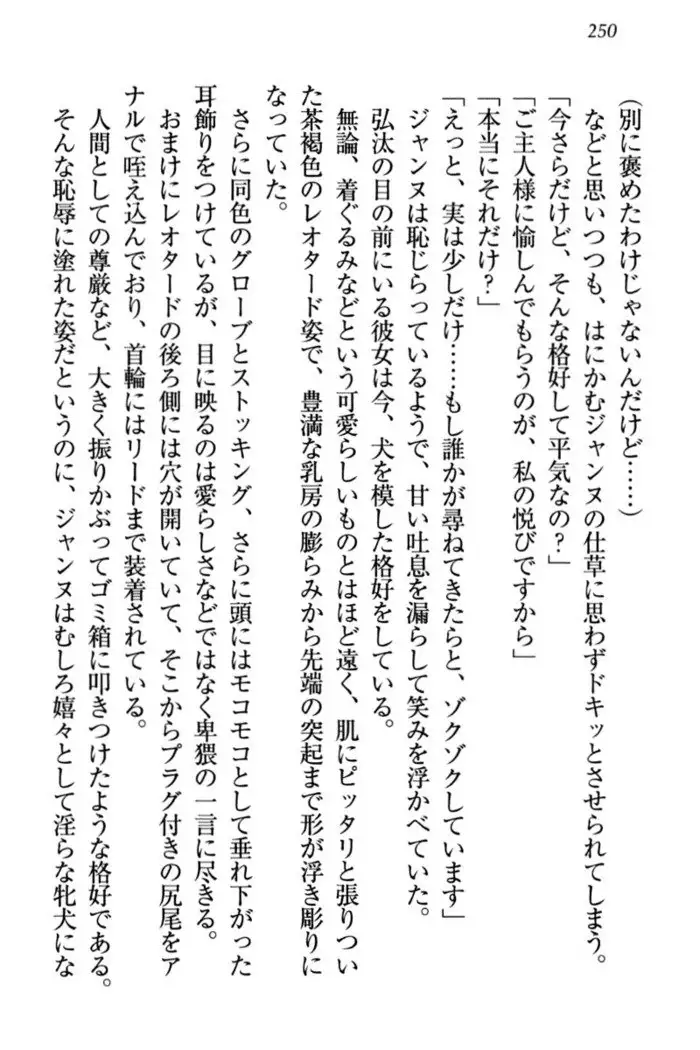 250
(別に褒めたわけじゃないんだけど……)
などと思いつつも、はにかむジャンヌの仕草に思わずドキッとさせられてしまう。
「今さらだけど、そんな格好して平気なの?」
「ご主人様に愉しんでもらうのが、私の悦びですから」
「本当にそれだけ?」
「えっと、実は少しだけ……もし誰かが尋ねてきたらと、ゾクゾクしています」
ジャンヌは恥じらっているようで、甘い吐息を漏らして笑みを浮かべていた。
弘汰の目の前にいる彼女は今、犬を模した格好をしている。
無論、着ぐるみなどという可愛らしいものとはほど遠く、肌にピッタリと張りつい
た茶褐色のレオタード姿で、豊満な乳房の膨らみから先端の突起まで形が浮き彫りに
なっていた。
さらに同色のグローブとストッキング、さらに頭にはモコモコとして垂れ下がった
耳飾りをつけているが、目に映るのは愛らしさなどではなく卑猥の一言に尽きる。
おまけにレオタードの後ろ側には穴が開いていて、そこからプラグ付きの尻尾をア
ナルで咥え込んでおり、首輪にはリードまで装着されている。
人間としての尊厳など、大きく振りかぶってゴミ箱に叩きつけたような格好である。
そんな恥辱に塗れた姿だというのに、ジャンヌはむしろ嬉々として淫らな牝犬にな